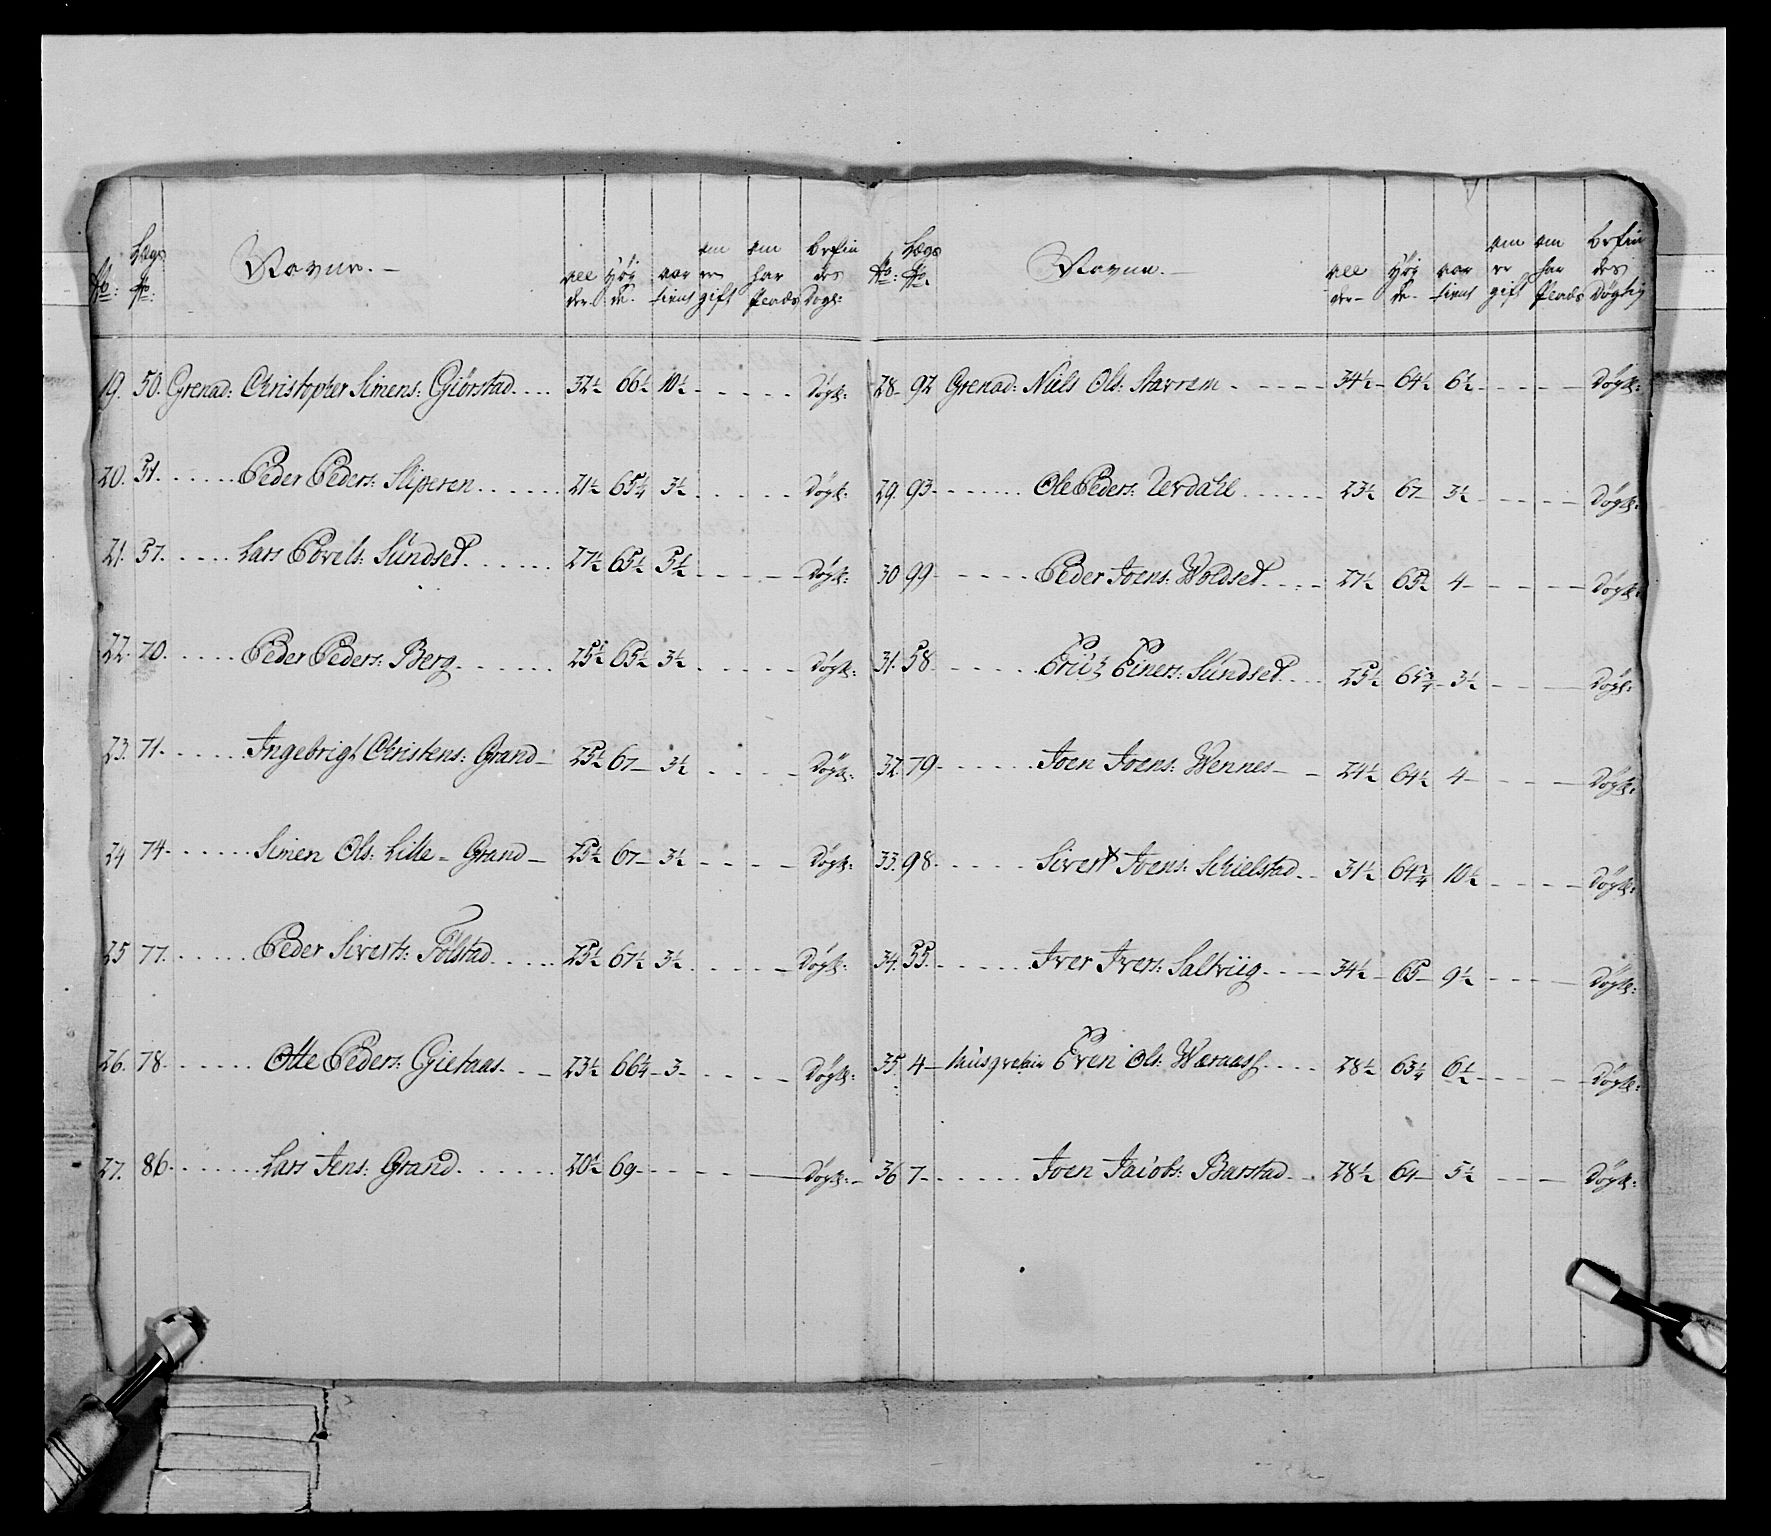 No: Lægs No: Navne. Alder. Høyde. aar tient om er gift om har Plads befindes Dygt:
19. 50. Grenad: Christopher Simens: Giørstad 32½ 66½ 10½ Dygt:
20. 51. Peder Peders: Sliperen 21½ 65¼ 3½ Dygt:
21. 57. Lars Povels: Sundset 27½ 65½ 5½ Dygt:
22. 70. Peder Peders: Berg 25½ 65½ 3½ Dygt:
23. 71. Ingebrigt Christens: Grand 25½ 67 3½ Dygt:
24 74. Simen Ols: Lille Grand 25½ 67 3½ Dygt:
25 77. Peder Siverts: Følstad 25½ 67½ 3½ Dygt:
26. 78. Otte Peders: Gietaas 23½ 66¼ 3 Dygt:
27. 86. Lars Jens: Grand 20½ 69 Dygt:
No: Lægs No. Navne. Alder Høyde. aar tient om er gift om har Plads befindes Døgtig
28. 92 Grenad: Niels Ols: Stavrem 34½ 64½ 6½ Dygt:
29. 93. Ole Peders: Uvdahl 23½ 67 3½ Dygt:
30 99 Peder Joens: Woldset 27½ 65½ 4 Dygt:
31. 58 Erich Einers: Sundset 25½ 65¾ 3½ Dygt:
32. 79 Joen Joens: Wennes 24½ 64½ 4 Dygt:
33. 98 Sivert Joens: Schielstad 31½ 64¾ 10½ Dygt:
34. 55. Iver Ivers: Saltviig 34½ 65 9½ Dygt:
35. 4 Musqveteir Even Ols: Wæraas 28½ 63¼ 6½ Dygt:
36 7 Joen Jacobs: Barstad 28½ 64 5½ Dygt: